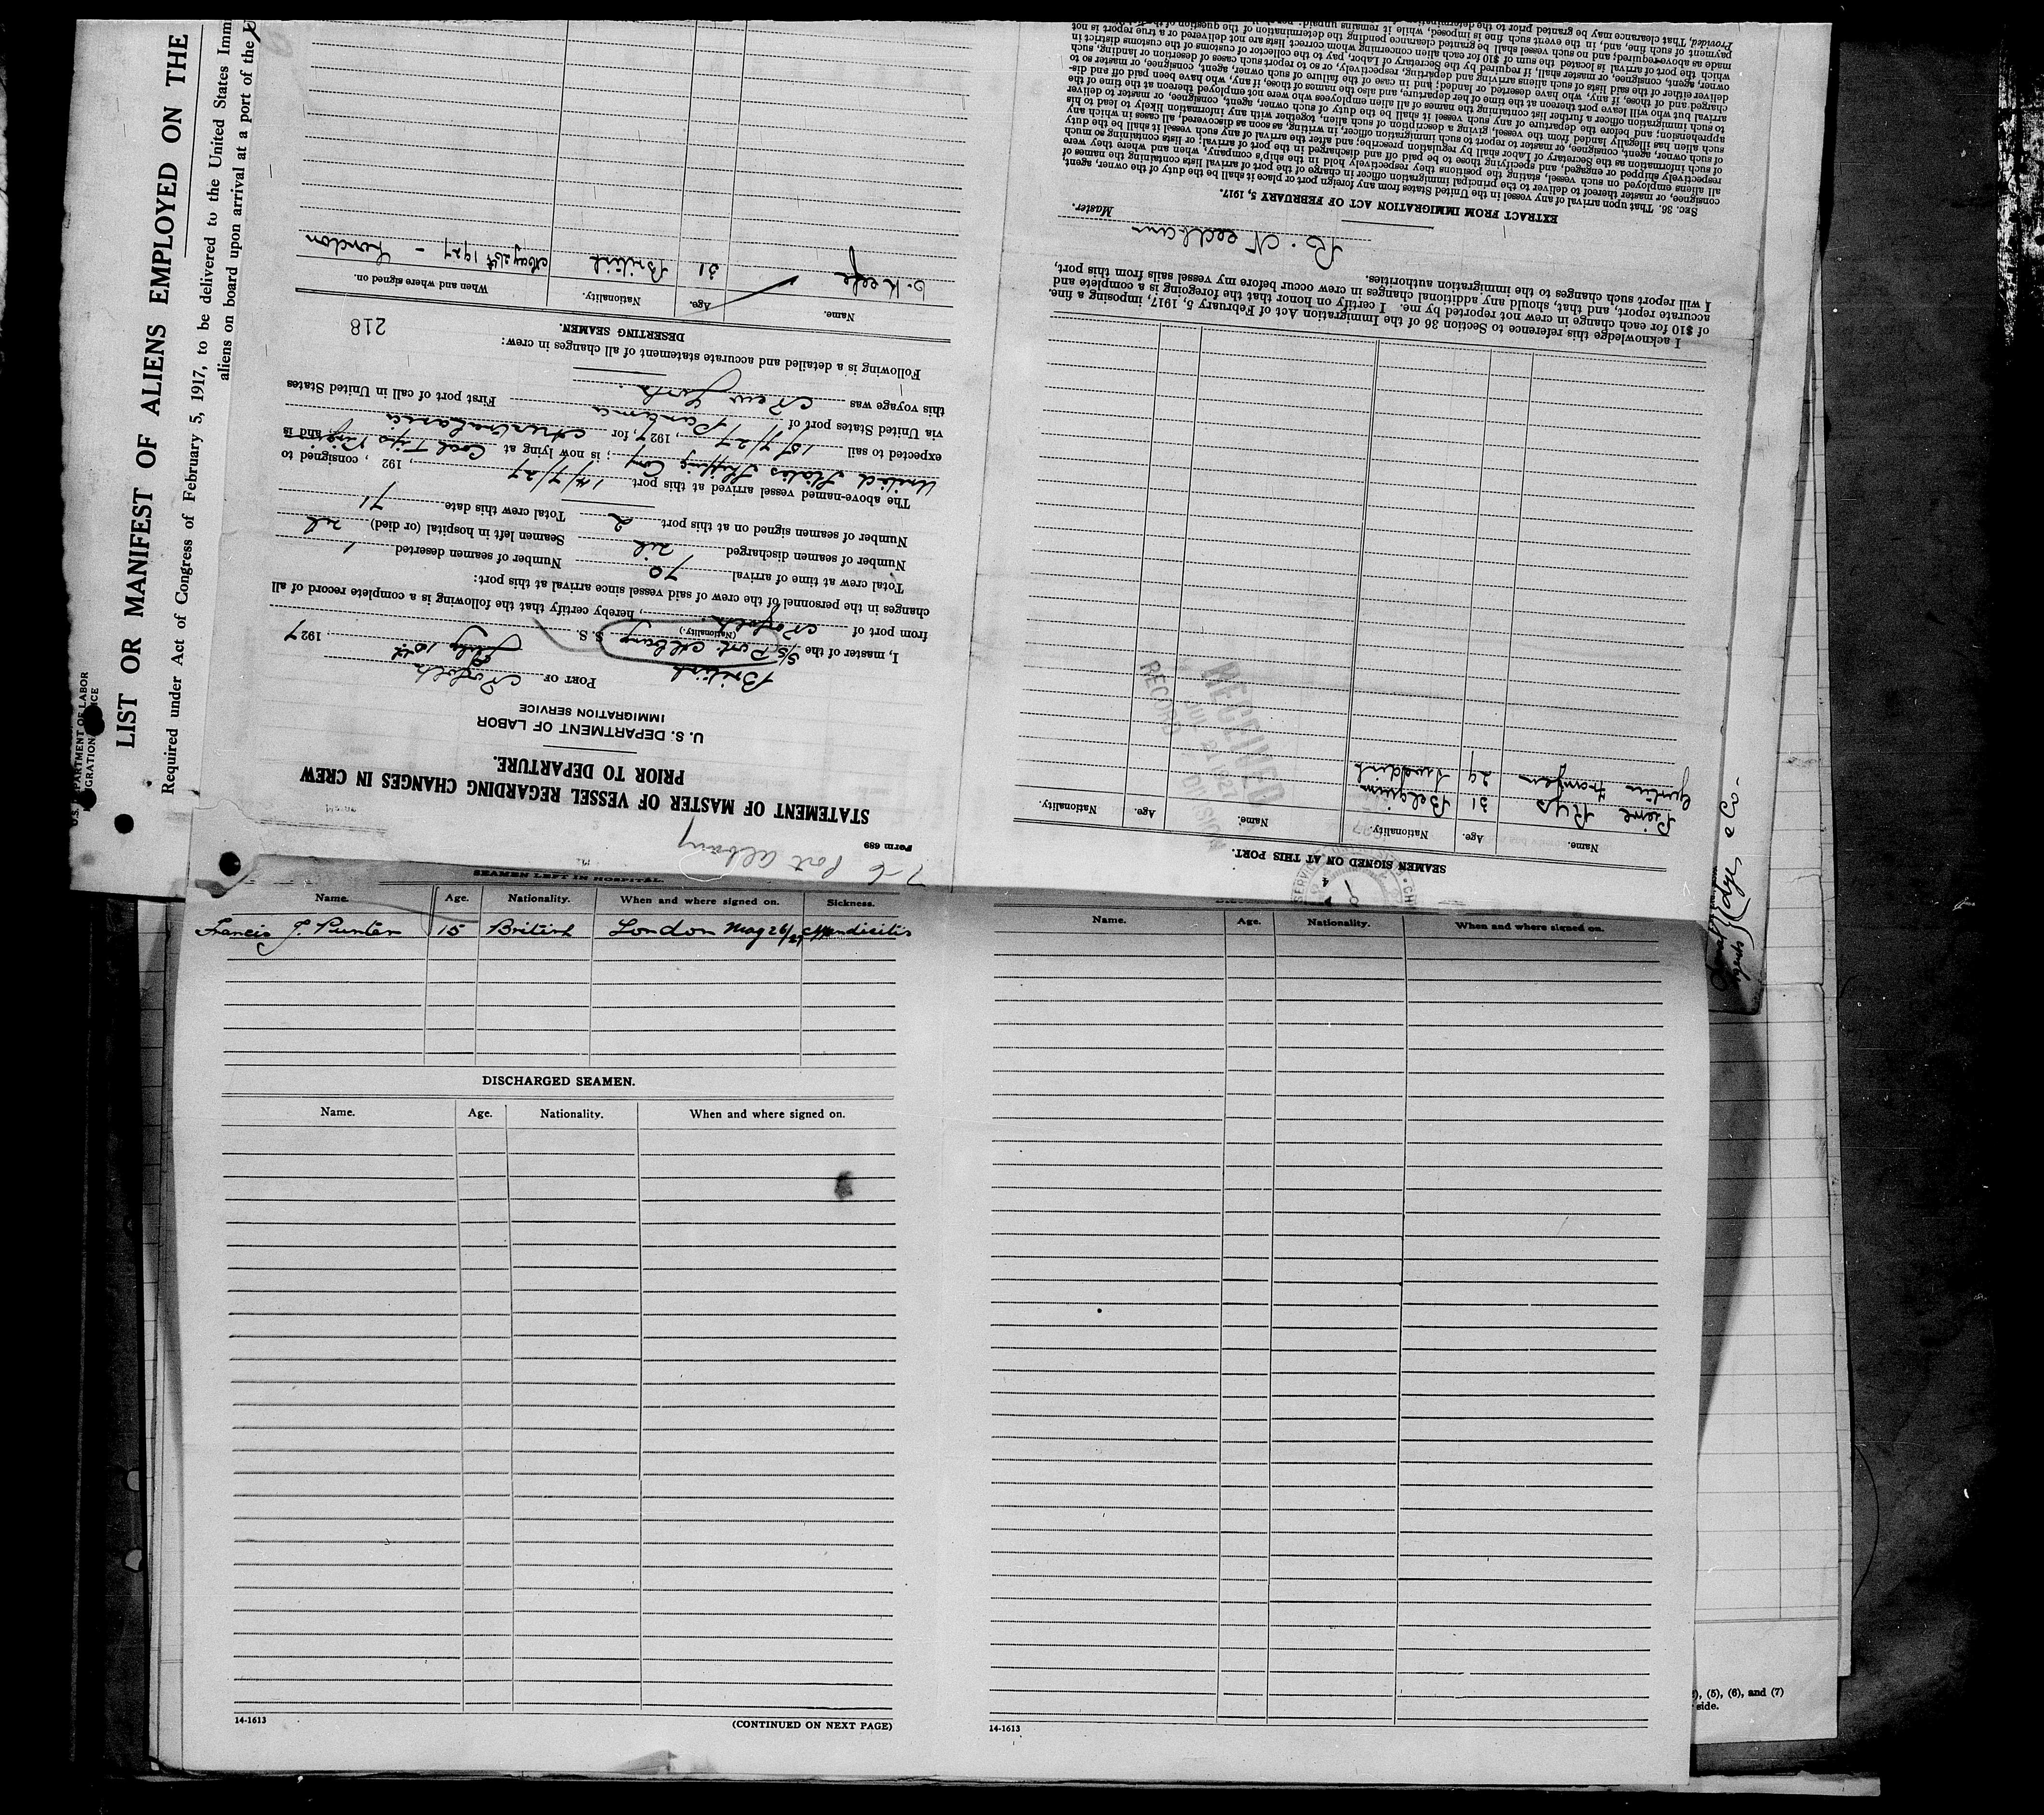 LIST OR MANIFEST OF ALIENS EMPLOYED ON THE
Required under Act of Congress of February 5, 1917, to be delivered to the United States Imm
aliens on board upon arrival at a port of the U
Form 689
7-6 Port Albany
STATEMENT OF MASTER OF VESSEL REGARDING CHANGES IN CREW
PRIOR TO DEPARTURE.
U. S. DEPARTMENT OF LABOR
IMMIGRATION SERVICE
PORT OF Norfolk
British July 15th, 1927
I, master of the S/S Port Albany S. S.
(Nationality.)
from port of Norfolk, hereby certify that the following is a complete record of all
changes in the personnel of the crew of said vessel since arrival at this port:
Total crew at time of arrival 70 Number of seamen deserted 1
Number of seamen discharged nil Seamen left in hospital (or died) nil
Number of seamen signed on at this port 2 Total crew this date 71
The above-named vessel arrived at this port 14/7/27, 192 , consigned to
United States Shipping Coy; is now lying at Coal Tips Virgin, and is
expected to sail 15/7/27, 1927, for Australasia
via United States port of Panama First port of call in United States
this voyage was New York.
Following is a detailed and accurate statement of all changes in crew:
DESERTING SEAMEN. 218
Name. Age. Nationality. When and where signed on.
O. Keefe 31 British May 21st 1927 - London
SEAMEN SIGNED ON AT THIS PORT.
Name. Age. Nationality. Name. Age. Nationality.
Pierre Rys 31 Belgium
29 Swedish
RECEIVED
JUL 21 1927
RECORD DIVISION
I acknowledge this reference to Section 36 of the Immigration Act of February 5, 1917, imposing a fine
of $10 for each change in crew not reported by me. I certify on honor that the foregoing is a complete and
accurate report, and that, should any additional changes in crew occur before my vessel sails from this port,
I will report such changes to the immigration authorities.
R. Needham
Master.
EXTRACT FROM IMMIGRATION ACT OF FEBRUARY 5, 1917.
SEC. 36. That upon arrival of any vessel in the United States from any foreign port or place it shall be the duty of the owner, agent,
consignee, or master thereof to deliver to the principal immigration officer in charge of the port of arrival lists containing the names of
all aliens employed on such vessel, stating the positions they respectively hold in the ship's company, when and where they were
respectively shipped or engaged, and specifying those to be paid off and discharged in the port of arrival; or lists containing so much
of such information as the Secretary of Labor shall by regulation prescribe; and after the arrival of any such vessel it shall be the duty
of such owner, agent, consignee, or master to report to such immigration officer, in writing, as soon as discovered, all cases in which any
such alien has illegally landed from the vessel, giving a description of such alien, together with any information likely to lead to his
apprehension; and before the departure of any such vessel it shall be the duty of such owner, agent, consignee, or master to deliver
to such immigration officer a further list containing the names of all alien employees who were not employed thereon at the time of the
arrival but who will leave port thereon at the time of her departure, and also the names of those, if any, who have been paid off and dis-
charged and of those, if any, who have deserted or landed; and in case of the failure of such owner, agent, consignee, or master so to
deliver either of the said lists of such aliens arriving and departing, respectively, or so to report such cases of desertion or landing, such
owner, agent, consignee, or master shall, if required by the Secretary of Labor, pay to the collector of customs of the customs district in
which the port of arrival is located the sum of $10 for each alien concerning whom correct lists are not delivered or a true report is not
made as above required; and no such vessel shall be granted clearance pending the determination of the question of the
payment of such fine, and, in the event such fine is imposed, while it remains unpaid;
Provided, That clearance may be granted prior to the determination
SEAMEN LEFT IN HOSPITAL.
Name. Age. Nationality. When and where signed on. Sickness.
Francis J. Punter 15 British London May 26/27 Appendicitis
DISCHARGED SEAMEN.
Name. Age. Nationality. When and where signed on.
14-1613 (CONTINUED ON NEXT PAGE)
Name. Age. Nationality. When and where signed on.
14-1613
Local Agents
Dye & Co-
(5), (6), and (7)
side.